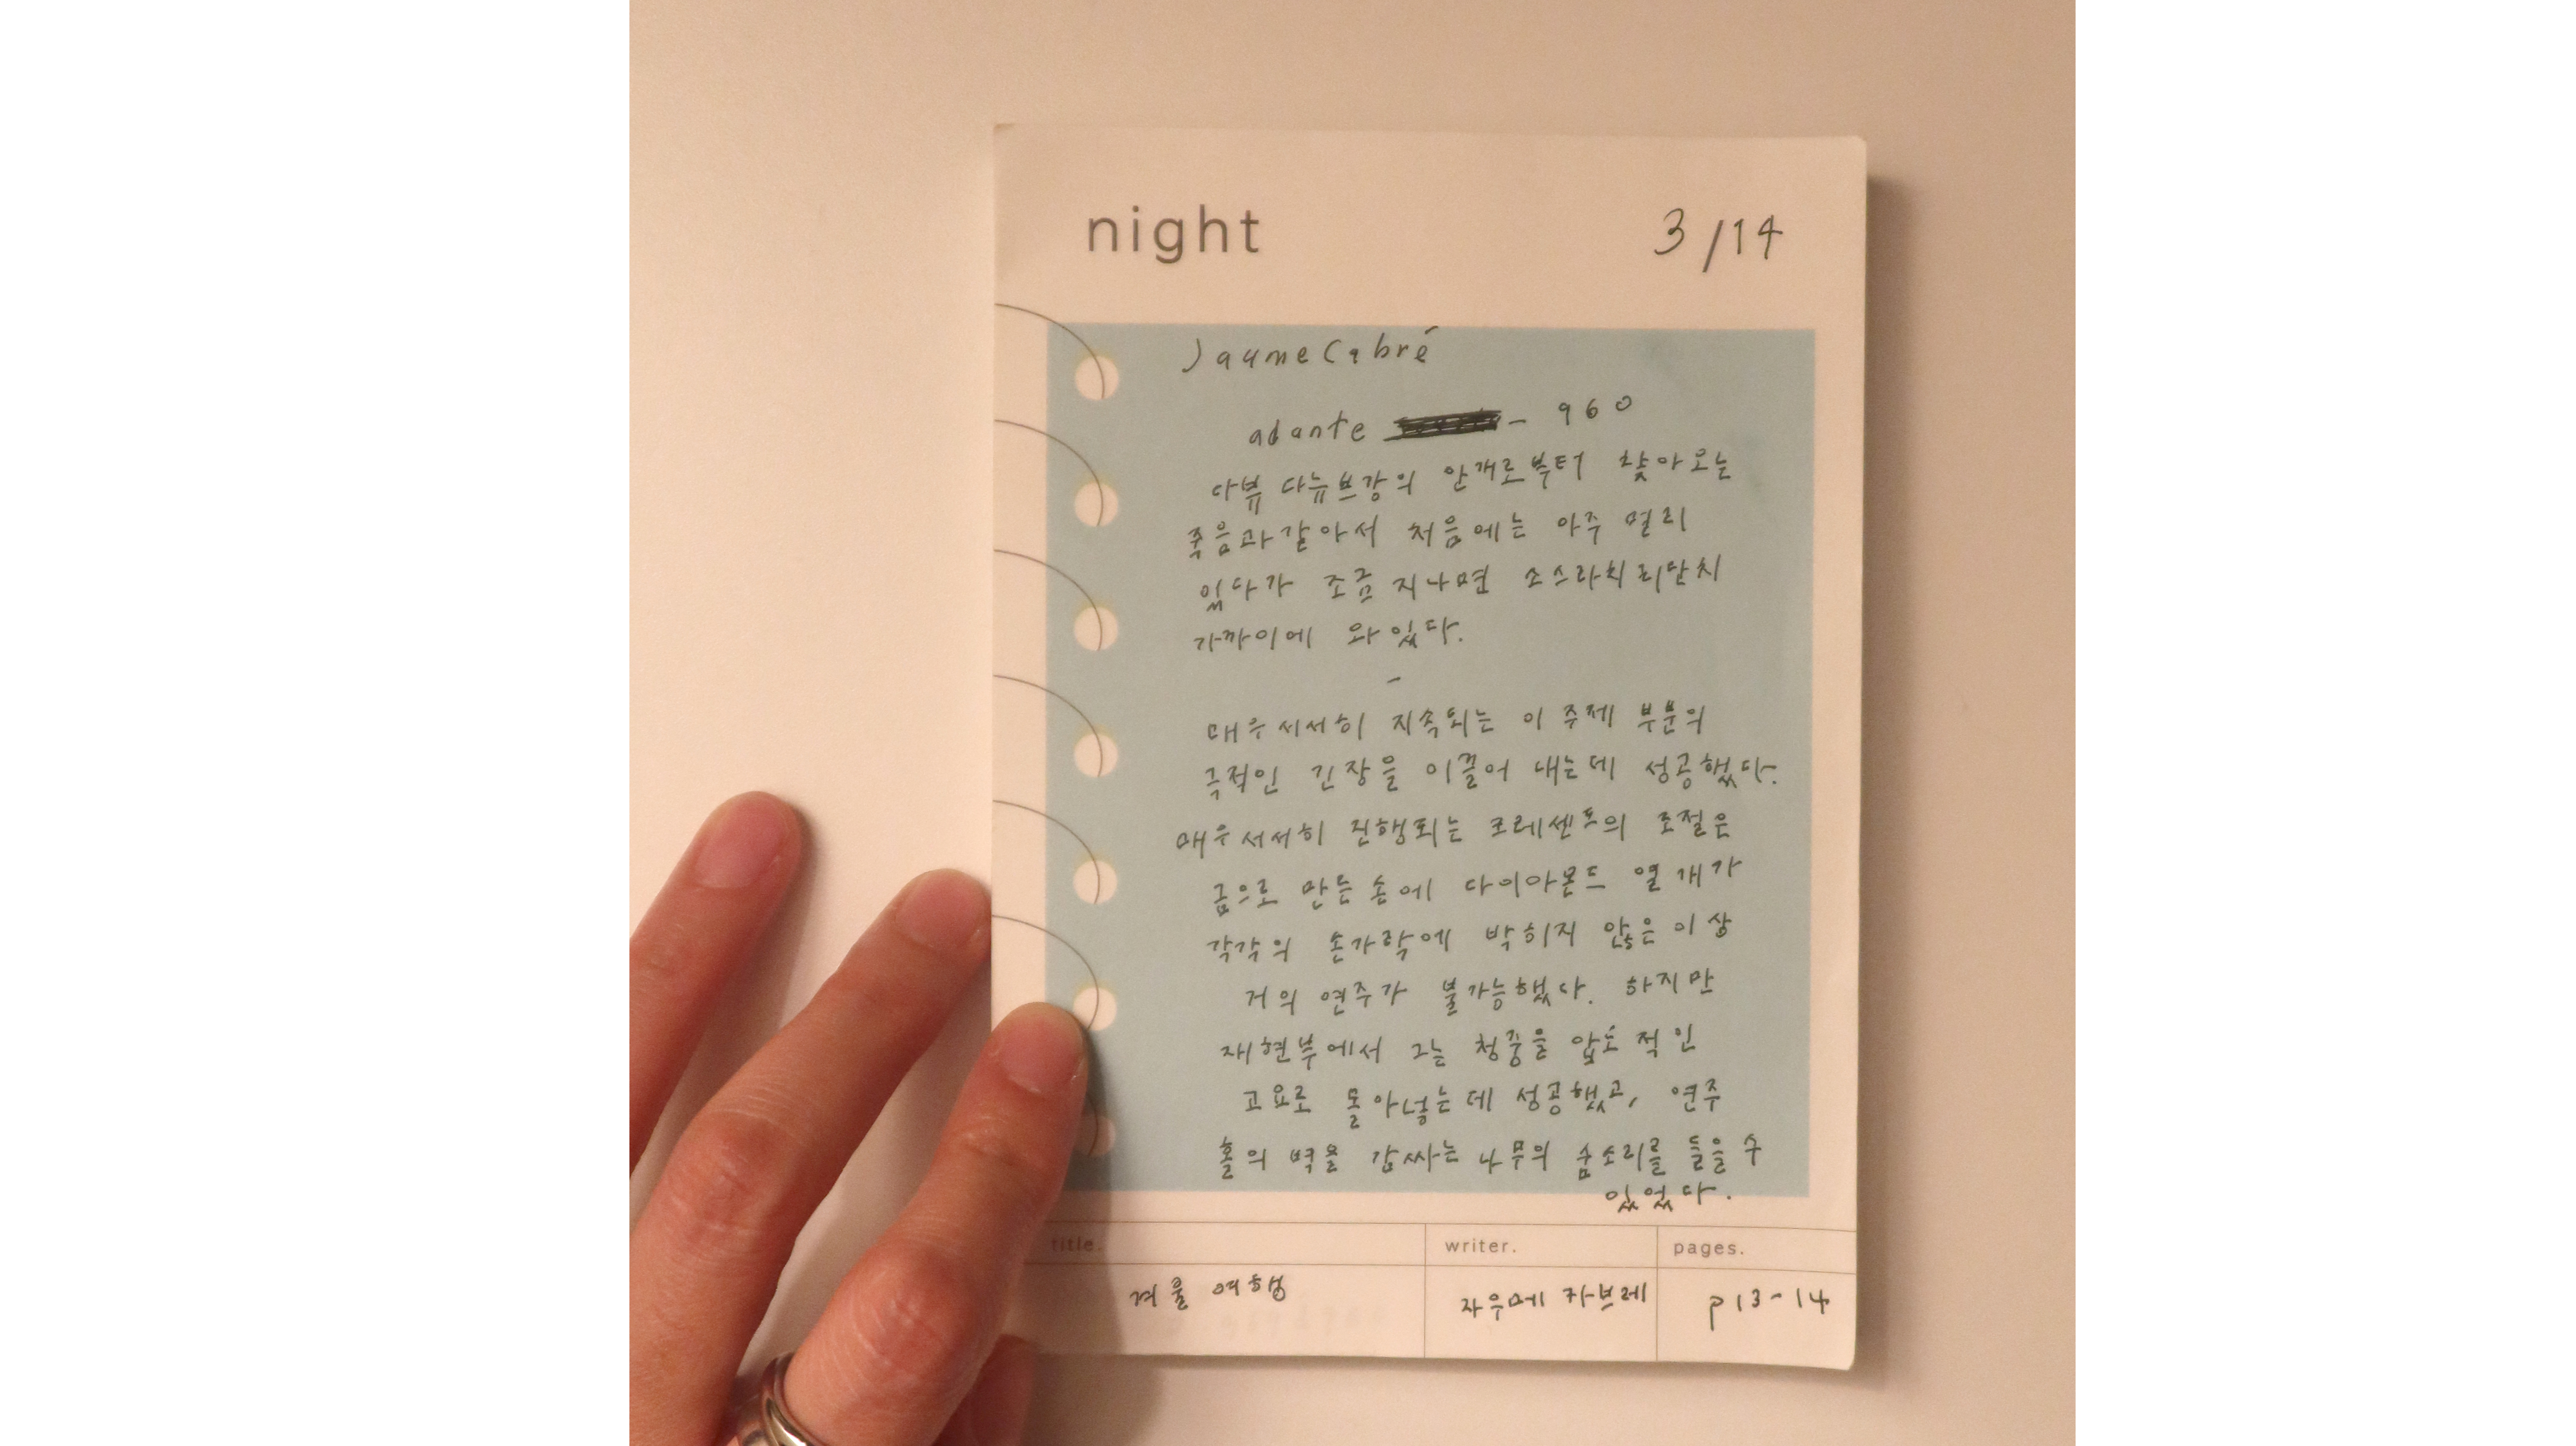 night
3/14
Jaume Cabré
adante - 960
다뷰 다뉴브강의 안개로부터 찾아오는
죽음과 같아서 처음에는 아주 멀리
있다가 조금 지나면 소스라치리만치
가까이에 와있다.
-
매우 서서히 지속되는 이 주제 부분의
극적인 긴장을 이끌어 내는데 성공했다.
매우 서서히 진행되는 크레센도의 조절은
금으로 만든 손에 다이아몬드 열 개가
각각의 손가락에 박히지 않은 이상
거의 연주가 불가능했다. 하지만
재현부에서 그는 청중을 압도적인
고요로 몰아넣는데 성공했고, 연주
홀의 벽을 감싸는 나무의 숨소리를 들을 수
있었다.
title.
writer.
pages.
겨울 여행
자우메 카브레
p13-14